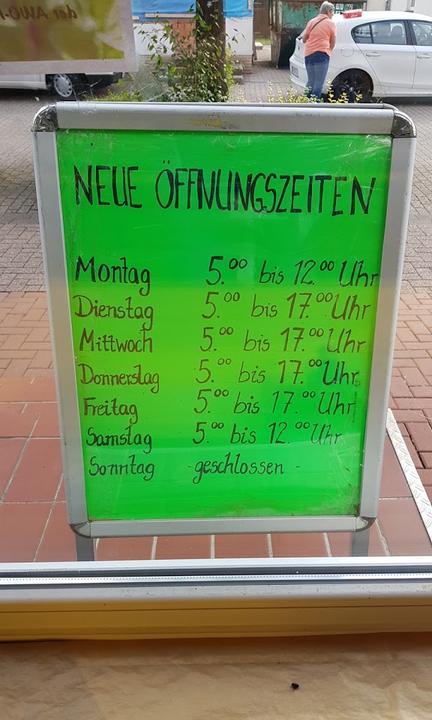 NEUE ÖFFNUNGSZEITEN
Montag 5.⁰⁰ bis 12.⁰⁰ Uhr
Dienstag 5.⁰⁰ bis 17.⁰⁰ Uhr
Mittwoch 5.⁰⁰ bis 17.⁰⁰ Uhr
Donnerstag 5.⁰⁰ bis 17.⁰⁰ Uhr
Freitag 5.⁰⁰ bis 17.⁰⁰ Uhr
Samstag 5.⁰⁰ bis 12.⁰⁰ Uhr
Sonntag - geschlossen -